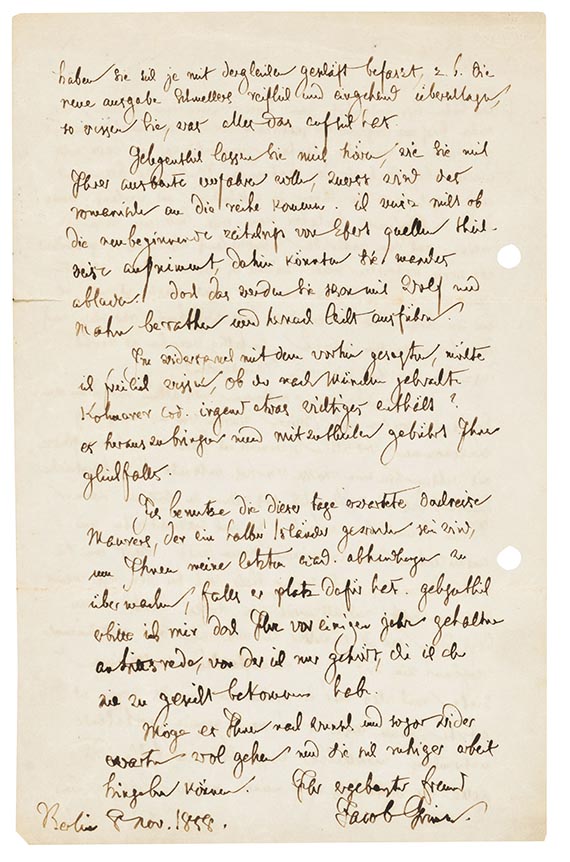 haben Sie sich je mit dergleichen geschäft befaszt, z. b. die
neue ausgabe Schmellers reiflich und eingehend überschlagen,
so wissen Sie, was alles das auf sich hat.
Gelegentlich lassen Sie mich hören, wie Sie mit
Ihrer ausbeute verfahren wollen, zuerst wird das
romanische an die reihe kommen. ich weisz nicht ob
die neubeginnende zeitschrift von Ebert quellen theil-
weise aufnimmt, dahin könnten Sie manches
abladen. doch das werden Sie schon mit Wolf und
Mahn berathen und hernach leicht ausführen.
Im widerspruch mit dem vorhin gesagten, möchte
ich freilich wissen, ob der nach München gebrachte
Kolmarer cod. irgend etwas wichtiges enthält?
es herauszubringen und mitzutheilen gebührt Ihnen
gleichfalls.
Ich benutze die dieser tage erwartete durchreise
Maurers, der ein halber Isländer geworden sein wird,
um Ihnen meine letzten acad. abhandlungen zu
übermachen, falls er platz dafür hat. gelegentlich
erbitte ich mir doch Ihre vor einigen jahren gehaltne
antrittsrede, von der ich nur gehört, die ich aber
nie zu gesicht bekommen habe.
Möge es Ihnen nach wunsch und sogar wider
erwarten wol gehen und Sie sich ruhiger arbeit
hingeben können. Ihr ergebenster freund
Berlin 8 nov. 1858. Jacob Grimm.